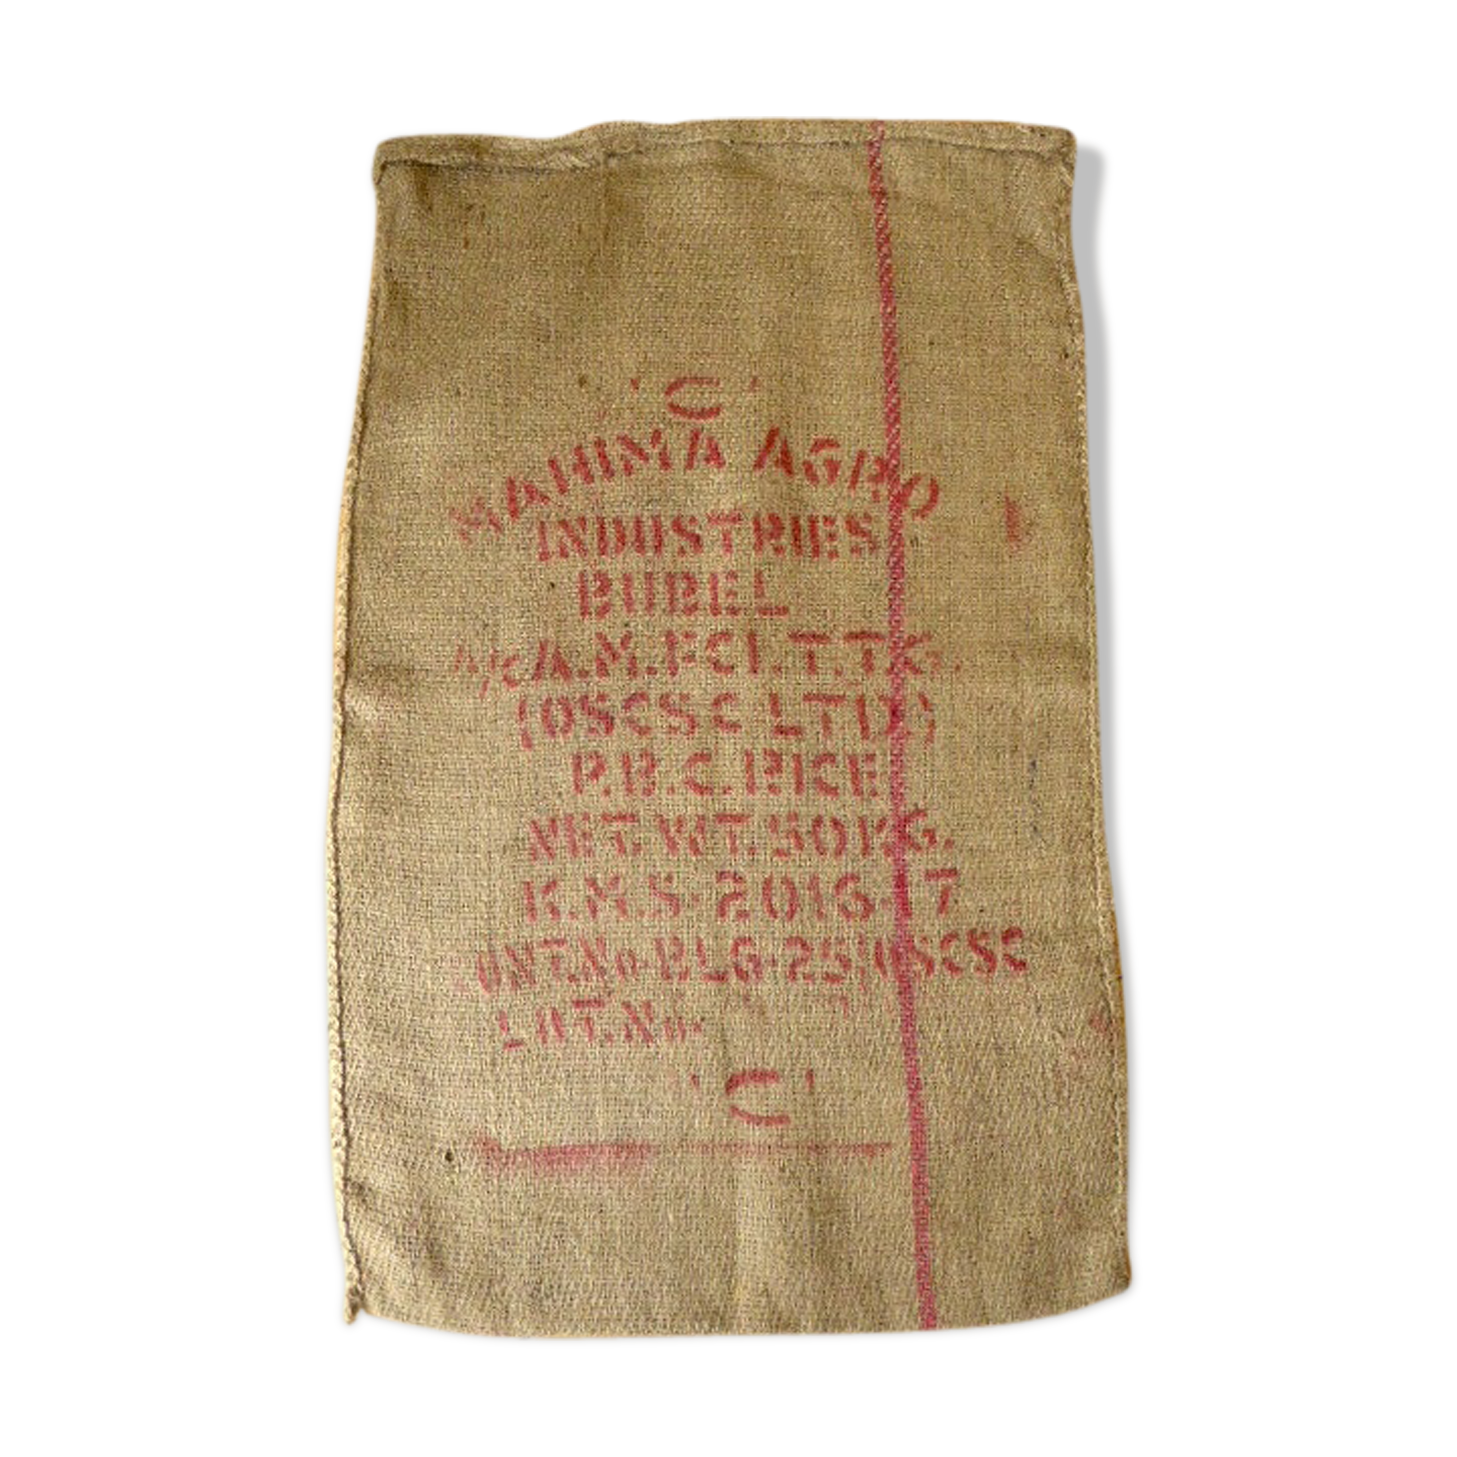 'C'
MAHIMA AGRO
INDUSTRIES
BUBEL
A/C A.M.FCI.T.T.G.
(OSCSC LTD)
P.B.C.RICE
NET.WT.50K.G.
K.M.S-2016-17
CONT.No-BLG-25/OSCSC
LOT.No-
'C'